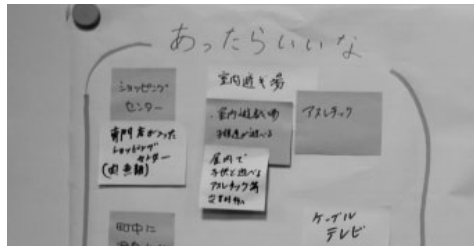 あったらいいな
ショッピング
センター
専門店が入った
ショッピング
センター
室内遊び場
・室内遊戯場
子供達が遊べる
屋内で
子供と遊べる
アスレチック等
アスレチック
町中に
ケーブル
テレビ